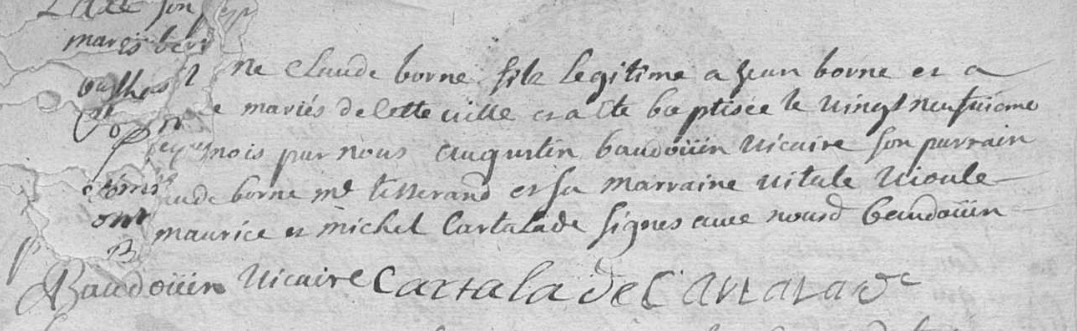 son
mariés
ne Claude borne fils legitime a Jean borne et a
e mariés de cette ville et a ete baptisée le vingt neufuieme
mois par nous augustin baudoüin vicaire son parrain
aude borne md tisserand et sa marraine vitale vioule
ont maurice et michel Cartalade signes avec nous baudoüin
Baudoüin vicaire Cartalade Cartalade